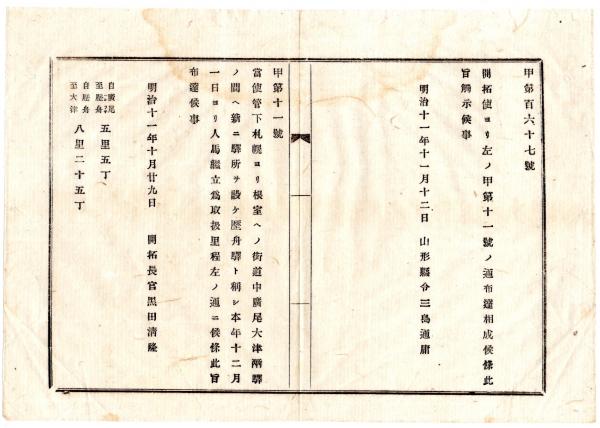 甲第百六十七號
開拓使ヨリ左ノ甲第十一號ノ通布達相成候條此
旨觸示候事
明治十一年十一月十二日　山形縣令三島通庸
甲第十一號
當使管下札幌ヨリ根室ヘノ街道中廣尾大津兩驛
ノ間ヘ新ニ驛所ヲ設ケ歴舟驛ト稱シ本年十二月
一日ヨリ人馬繼立爲取扱里程左ノ通ニ候條此旨
布達候事
明治十一年十月廿九日　開拓長官黑田清隆
自廣尾
至歴舟　五里五丁
自歴舟
至大津　八里二十五丁